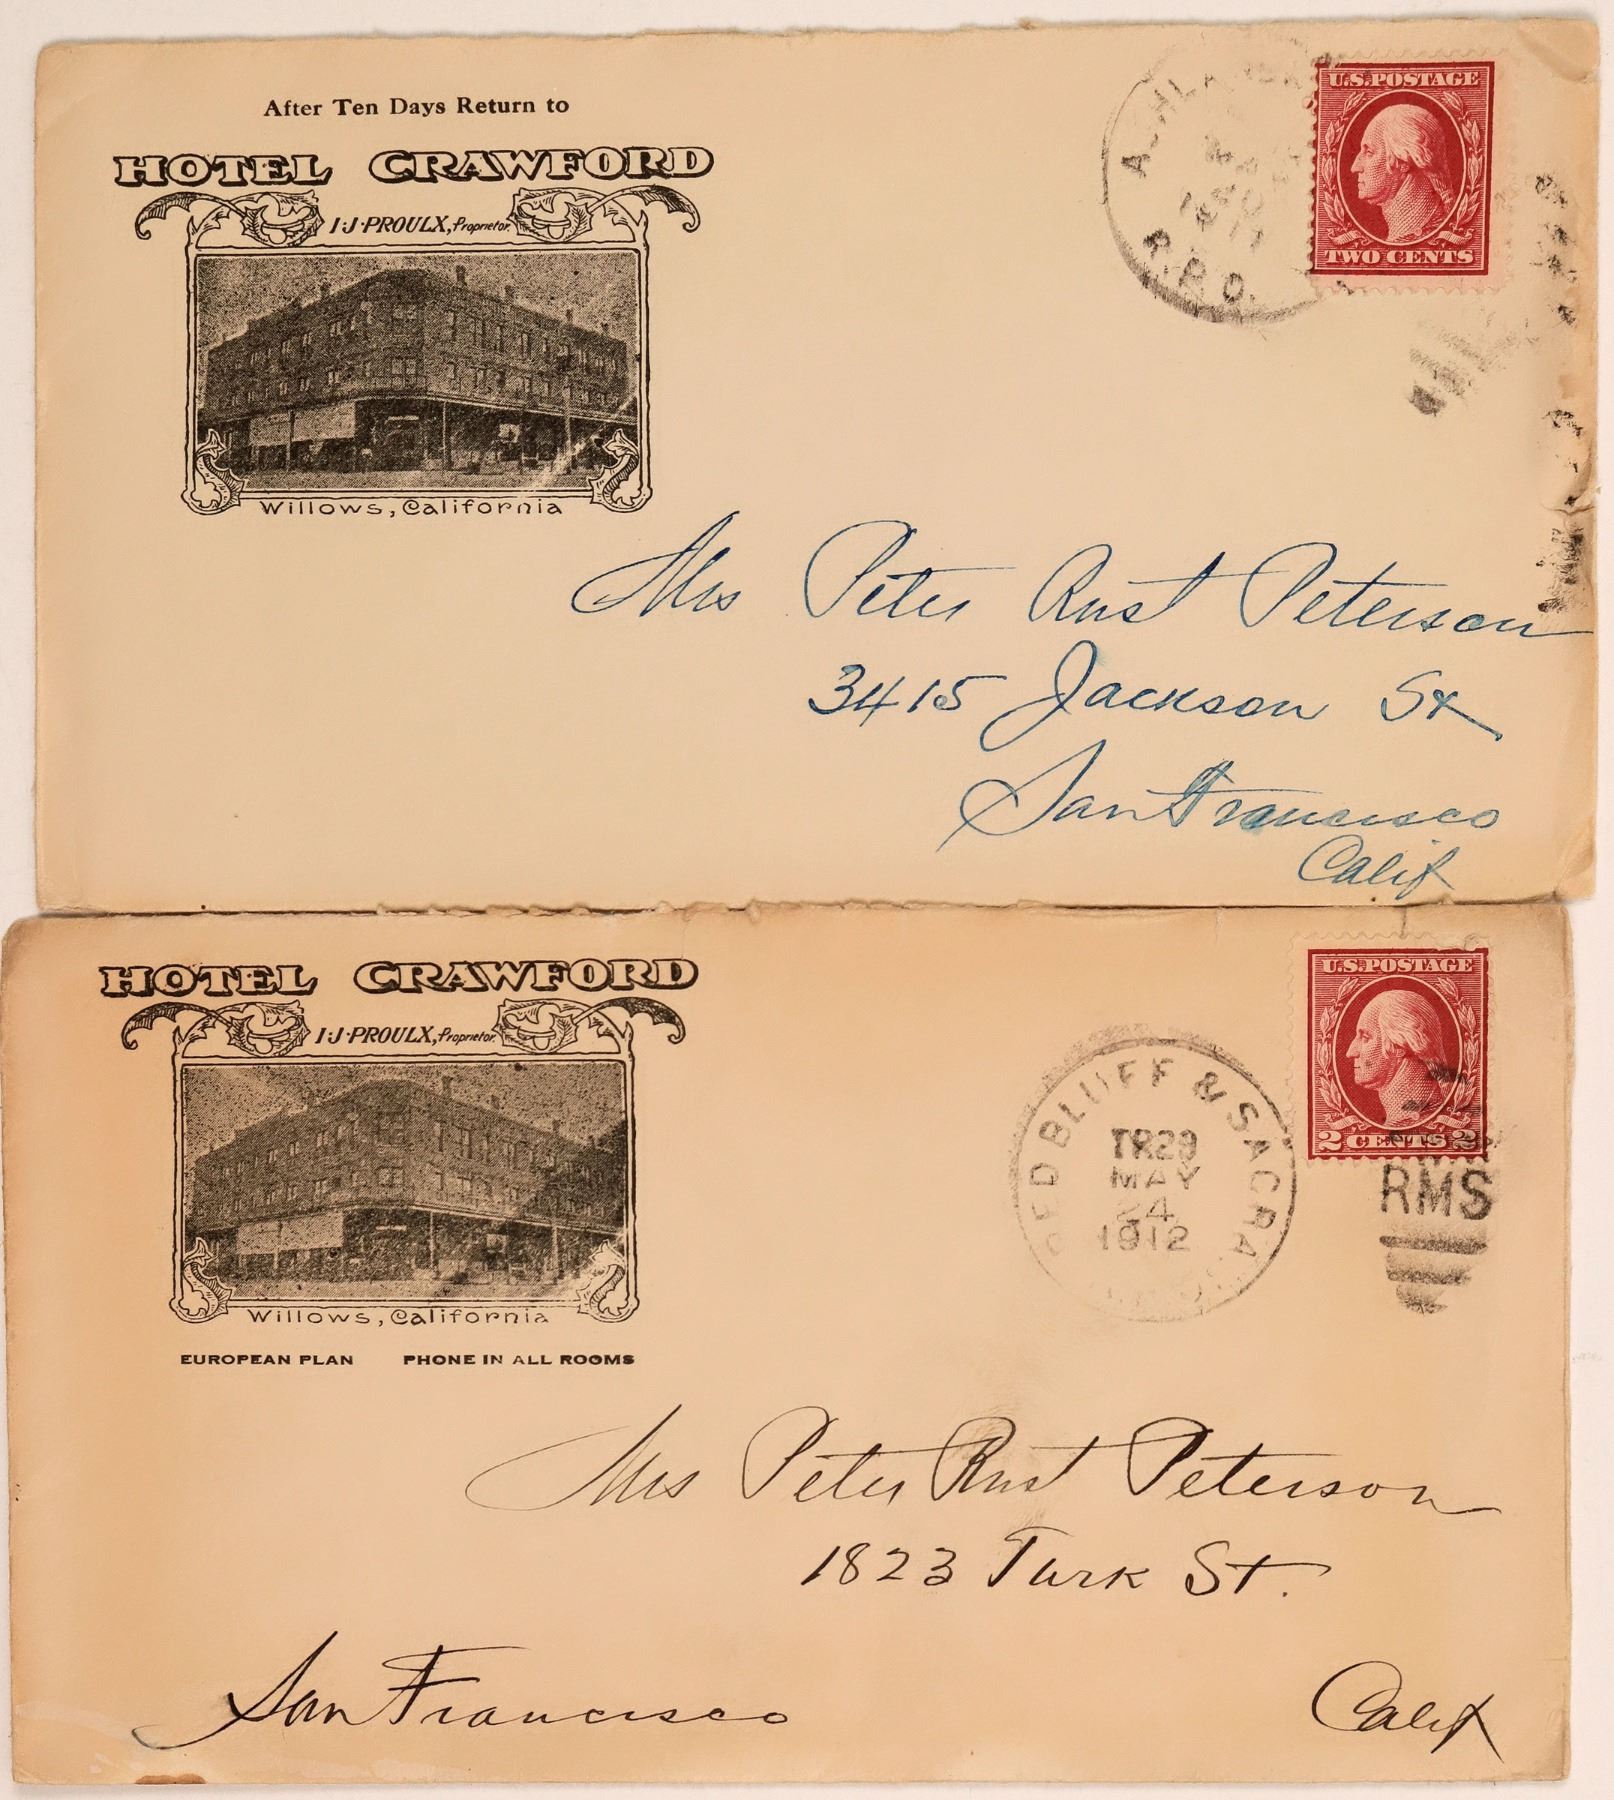 After Ten Days Return to
HOTEL CRAWFORD
I·J·PROULX, Proprietor.
Willows, California
R.P.O.
U.S. POSTAGE
TWO CENTS
Mrs Peter Rust Peterson
3415 Jackson St
San Francisco
Calif
HOTEL CRAWFORD
I·J·PROULX, Proprietor.
Willows, California
EUROPEAN PLAN PHONE IN ALL ROOMS
RED BLUFF & SACRA
TR29
MAY
24
1912
U.S. POSTAGE
2 CENTS 2
RMS
Mrs Peter Rust Peterson
1823 Turk St.
San Francisco Calif